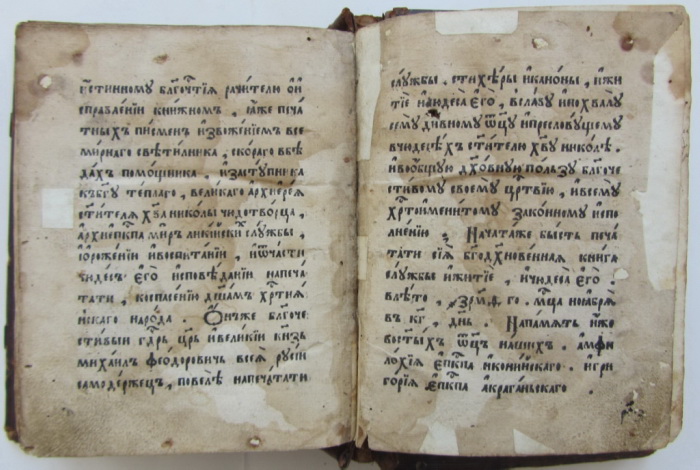 истинному блг҃очⷭ҇тїѧ рачителю ѡ҆и
справленїи книжном, є҆же печа
тныхъ писмен и҆звоженїем все
мирнаго свѣтилника, скораго в бѣ
дах помощника, и҆ застꙋпника
къ бг҃ꙋ теплаго, великаго а҆рхїерея
ст҃ителя хв҃а николы чюдотворца,
а҆рхїепⷭ҇кпа мир ликїискї слꙋжбы,
ѡ҆роженїи и҆ воспитанїи, и҆ ѿчасти
є҆гѡ̀ и҆сповѣданїи напеча
тати, къ спасенїю дш҃ам хрⷭ҇тїѧ
нскаго народа. Ѻ҆нъ же блг҃оче
стивыи гдⷭ҇рь, цр҃ь и҆ великїи кн҃зь
михаилъ феодоровичь всеѧ̀ рꙋсїи
самодержецъ, повелѣ напечатати
слꙋжбы, стихѣры и҆ каноны, и҆ жи
тїе и҆ чюдеса є҆гѡ̀, в славꙋ и҆ похвалꙋ
семꙋ дивномꙋ ѿц҃ꙋ и҆ преслову́щемꙋ
в чюдесѣхъ ст҃ителю хв҃ꙋ николѣ.
и҆ во ѻ҆бщꙋю дх҃овнꙋю пользꙋ благоче
стивомꙋ своемꙋ црⷭ҇твїю, и҆ всемꙋ
хрⷭ҇тоименитомꙋ законномꙋ и҆спо
лненїю. Начата же бысть печа
тати сїѧ̀ бг҃одх҃новеннаѧ книга
слꙋжбы и҆ житїе, и҆ чюдеса є҆гѡ̀.
в лѣто, ҂зрм҃ѳ. го. мцⷭ҇а ноѧбрѧ
въ кг҃, дн҃ь. На память и҆же
во ст҃ыхъ ѿц҃ъ наших. а҆мфи
лохїя є҆пⷭ҇кпа и҆конїйскаго. и҆ гри
горїя є҆пⷭ҇кпа а҆краганьскаго.